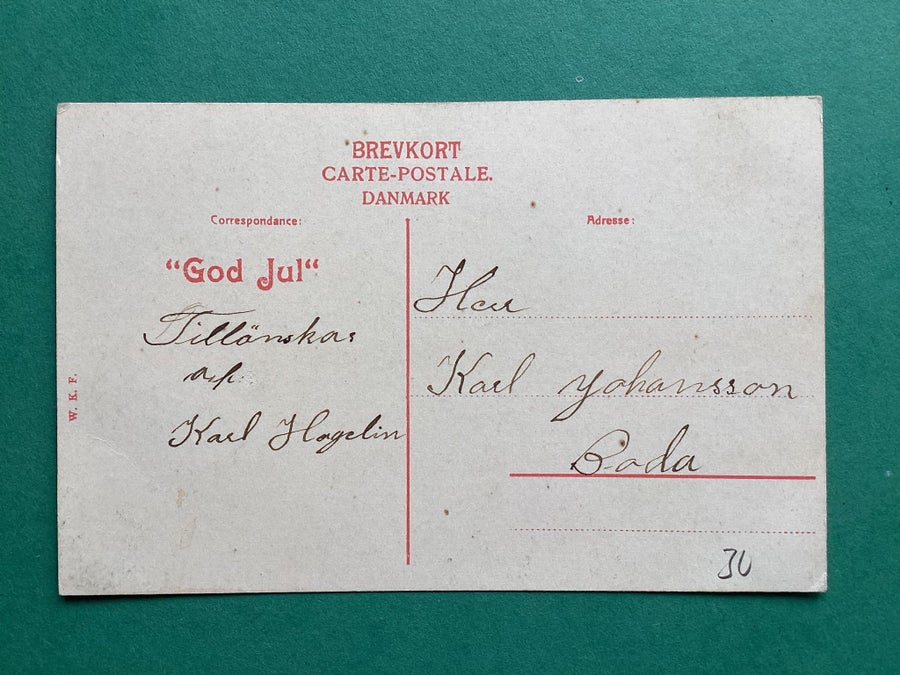 BREVKORT
CARTE-POSTALE.
DANMARK
Correspondance:
Adresse:
"God Jul"
Tillönskas
af
Karl Hagelin
Herr
Karl Johansson
Boda
W. K. F.
30